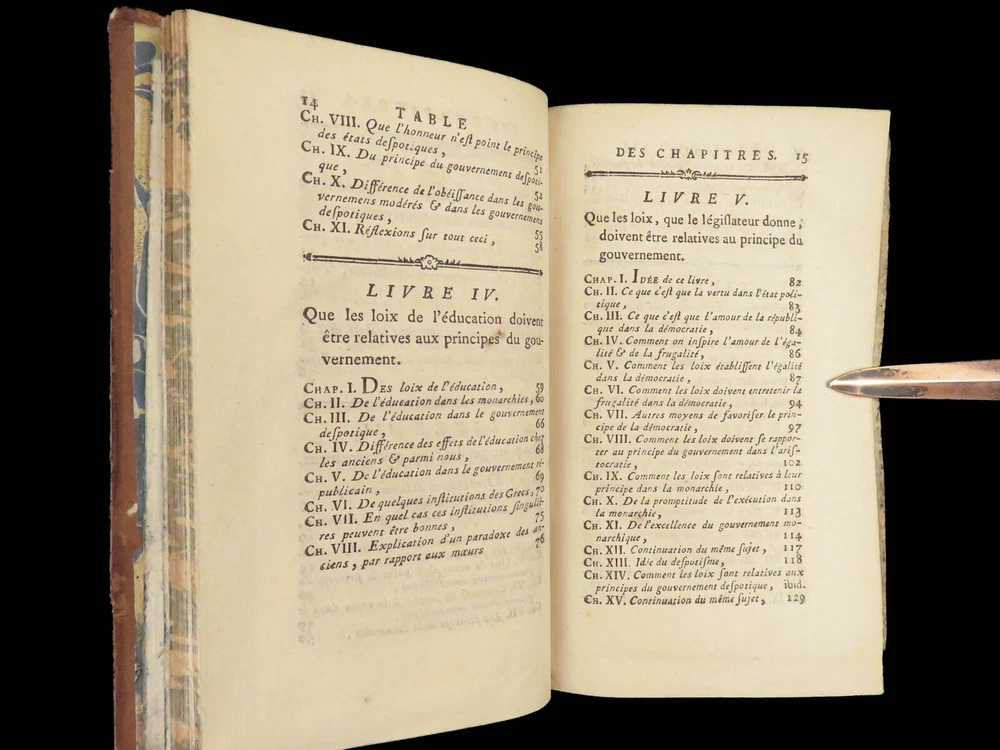 14
TABLE
CH. VIII. Que l'honneur n'eſt point le principe
des états deſpotiques, 51
CH. IX. Du principe du gouvernement deſpoti-
que, 52
CH. X. Différence de l'obéiſſance dans les gou-
vernemens modérés & dans les gouvernemens
deſpotiques, 55
CH. XI. Réflexions ſur tout ceci, 58
LIVRE IV.
Que les loix de l'éducation doivent
être relatives aux principes du gou-
vernement.
CHAP. I. DES loix de l'éducation, 59
CH. II. De l'éducation dans les monarchies, 60
CH. III. De l'éducation dans le gouvernement
deſpotique, 66
CH. IV. Différence des effets de l'éducation chez
les anciens & parmi nous, 68
CH. V. De l'éducation dans le gouvernement ré-
publicain, 69
CH. VI. De quelques inſtitutions des Grecs, 70
CH. VII. En quel cas ces inſtitutions ſinguliè-
res peuvent être bonnes, 75
CH. VIII. Explication d'un paradoxe des an-
ciens, par rapport aux mœurs 76
DES CHAPITRES. 15
LIVRE V.
Que les loix, que le légiſlateur donne,
doivent être relatives au principe du
gouvernement.
CHAP. I. IDÉE de ce livre, 82
CH. II. Ce que c'eſt que la vertu dans l'état poli-
tique, 83
CH. III. Ce que c'eſt que l'amour de la républi-
que dans la démocratie, 84
CH. IV. Comment on inſpire l'amour de l'éga-
lité & de la frugalité, 86
CH. V. Comment les loix établiſſent l'égalité
dans la démocratie, 87
CH. VI. Comment les loix doivent entretenir la
frugalité dans la démocratie, 94
CH. VII. Autres moyens de favoriſer le prin-
cipe de la démocratie, 97
CH. VIII. Comment les loix doivent ſe rappor-
ter au principe du gouvernement dans l'ariſ-
tocratie, 102
CH. IX. Comment les loix ſont relatives à leur
principe dans la monarchie, 110
CH. X. De la promptitude de l'exécution dans
la monarchie, 113
CH. XI. De l'excellence du gouvernement mo-
narchique, 114
CH. XII. Continuation du même ſujet, 117
CH. XIII. Idée du deſpotiſme, 118
CH. XIV. Comment les loix ſont relatives aux
principes du gouvernement deſpotique, ibid.
CH. XV. Continuation du même ſujet, 129